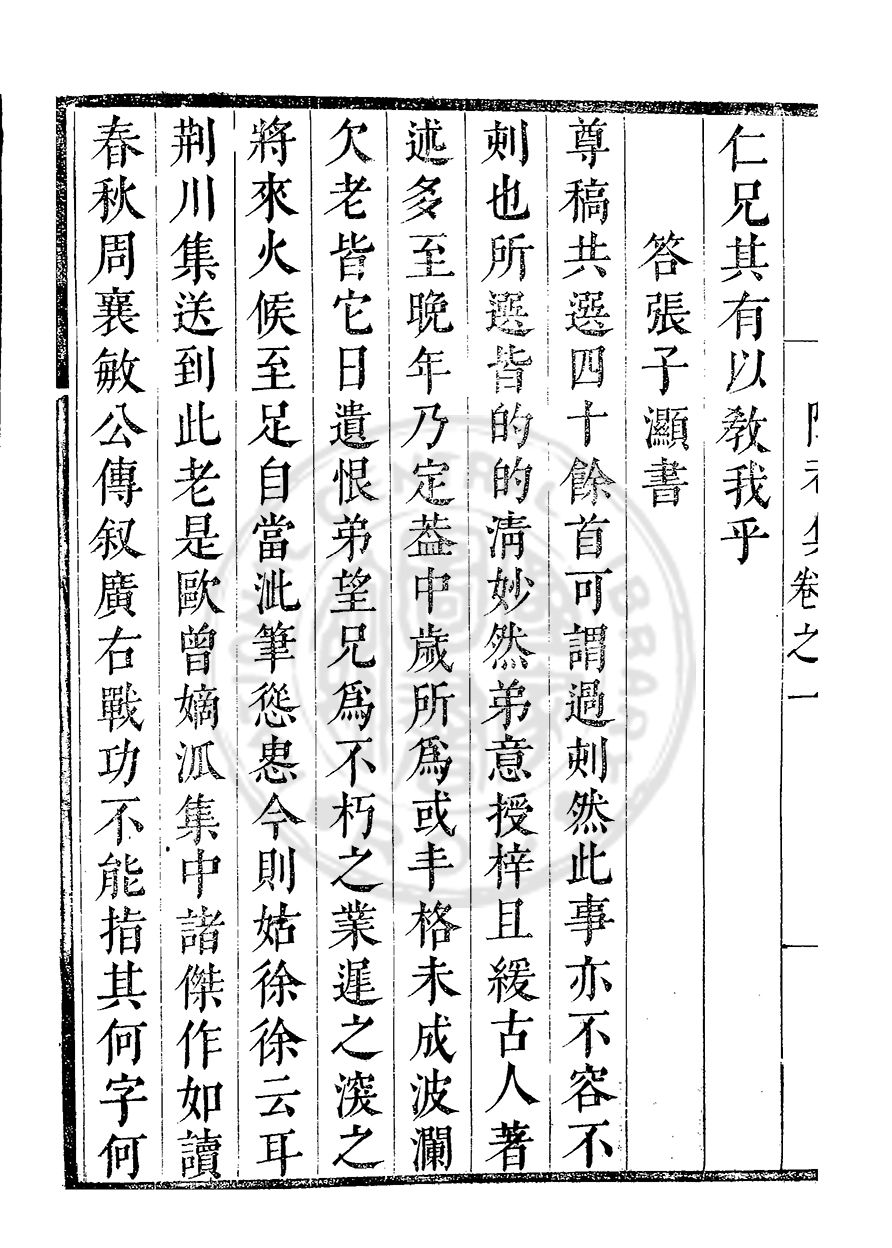 卷之一
仁兄其有以教我乎
答張子灝書
尊稿共選四十餘首可謂過刺然此事亦不容不
刺也所選皆的的清妙然弟意授梓且緩古人著
述多至晚年乃定葢中歲所爲或丰格未成波瀾
欠老皆它日遺恨弟望兄爲不朽之業遲之渓之
將來火候至足自當泚筆慫恿今則姑徐徐云耳
荆川集送到此老是歐曾嫡派集中諸傑作如讀
春秋周襄敏公傳叙廣右戰功不能指其何字何